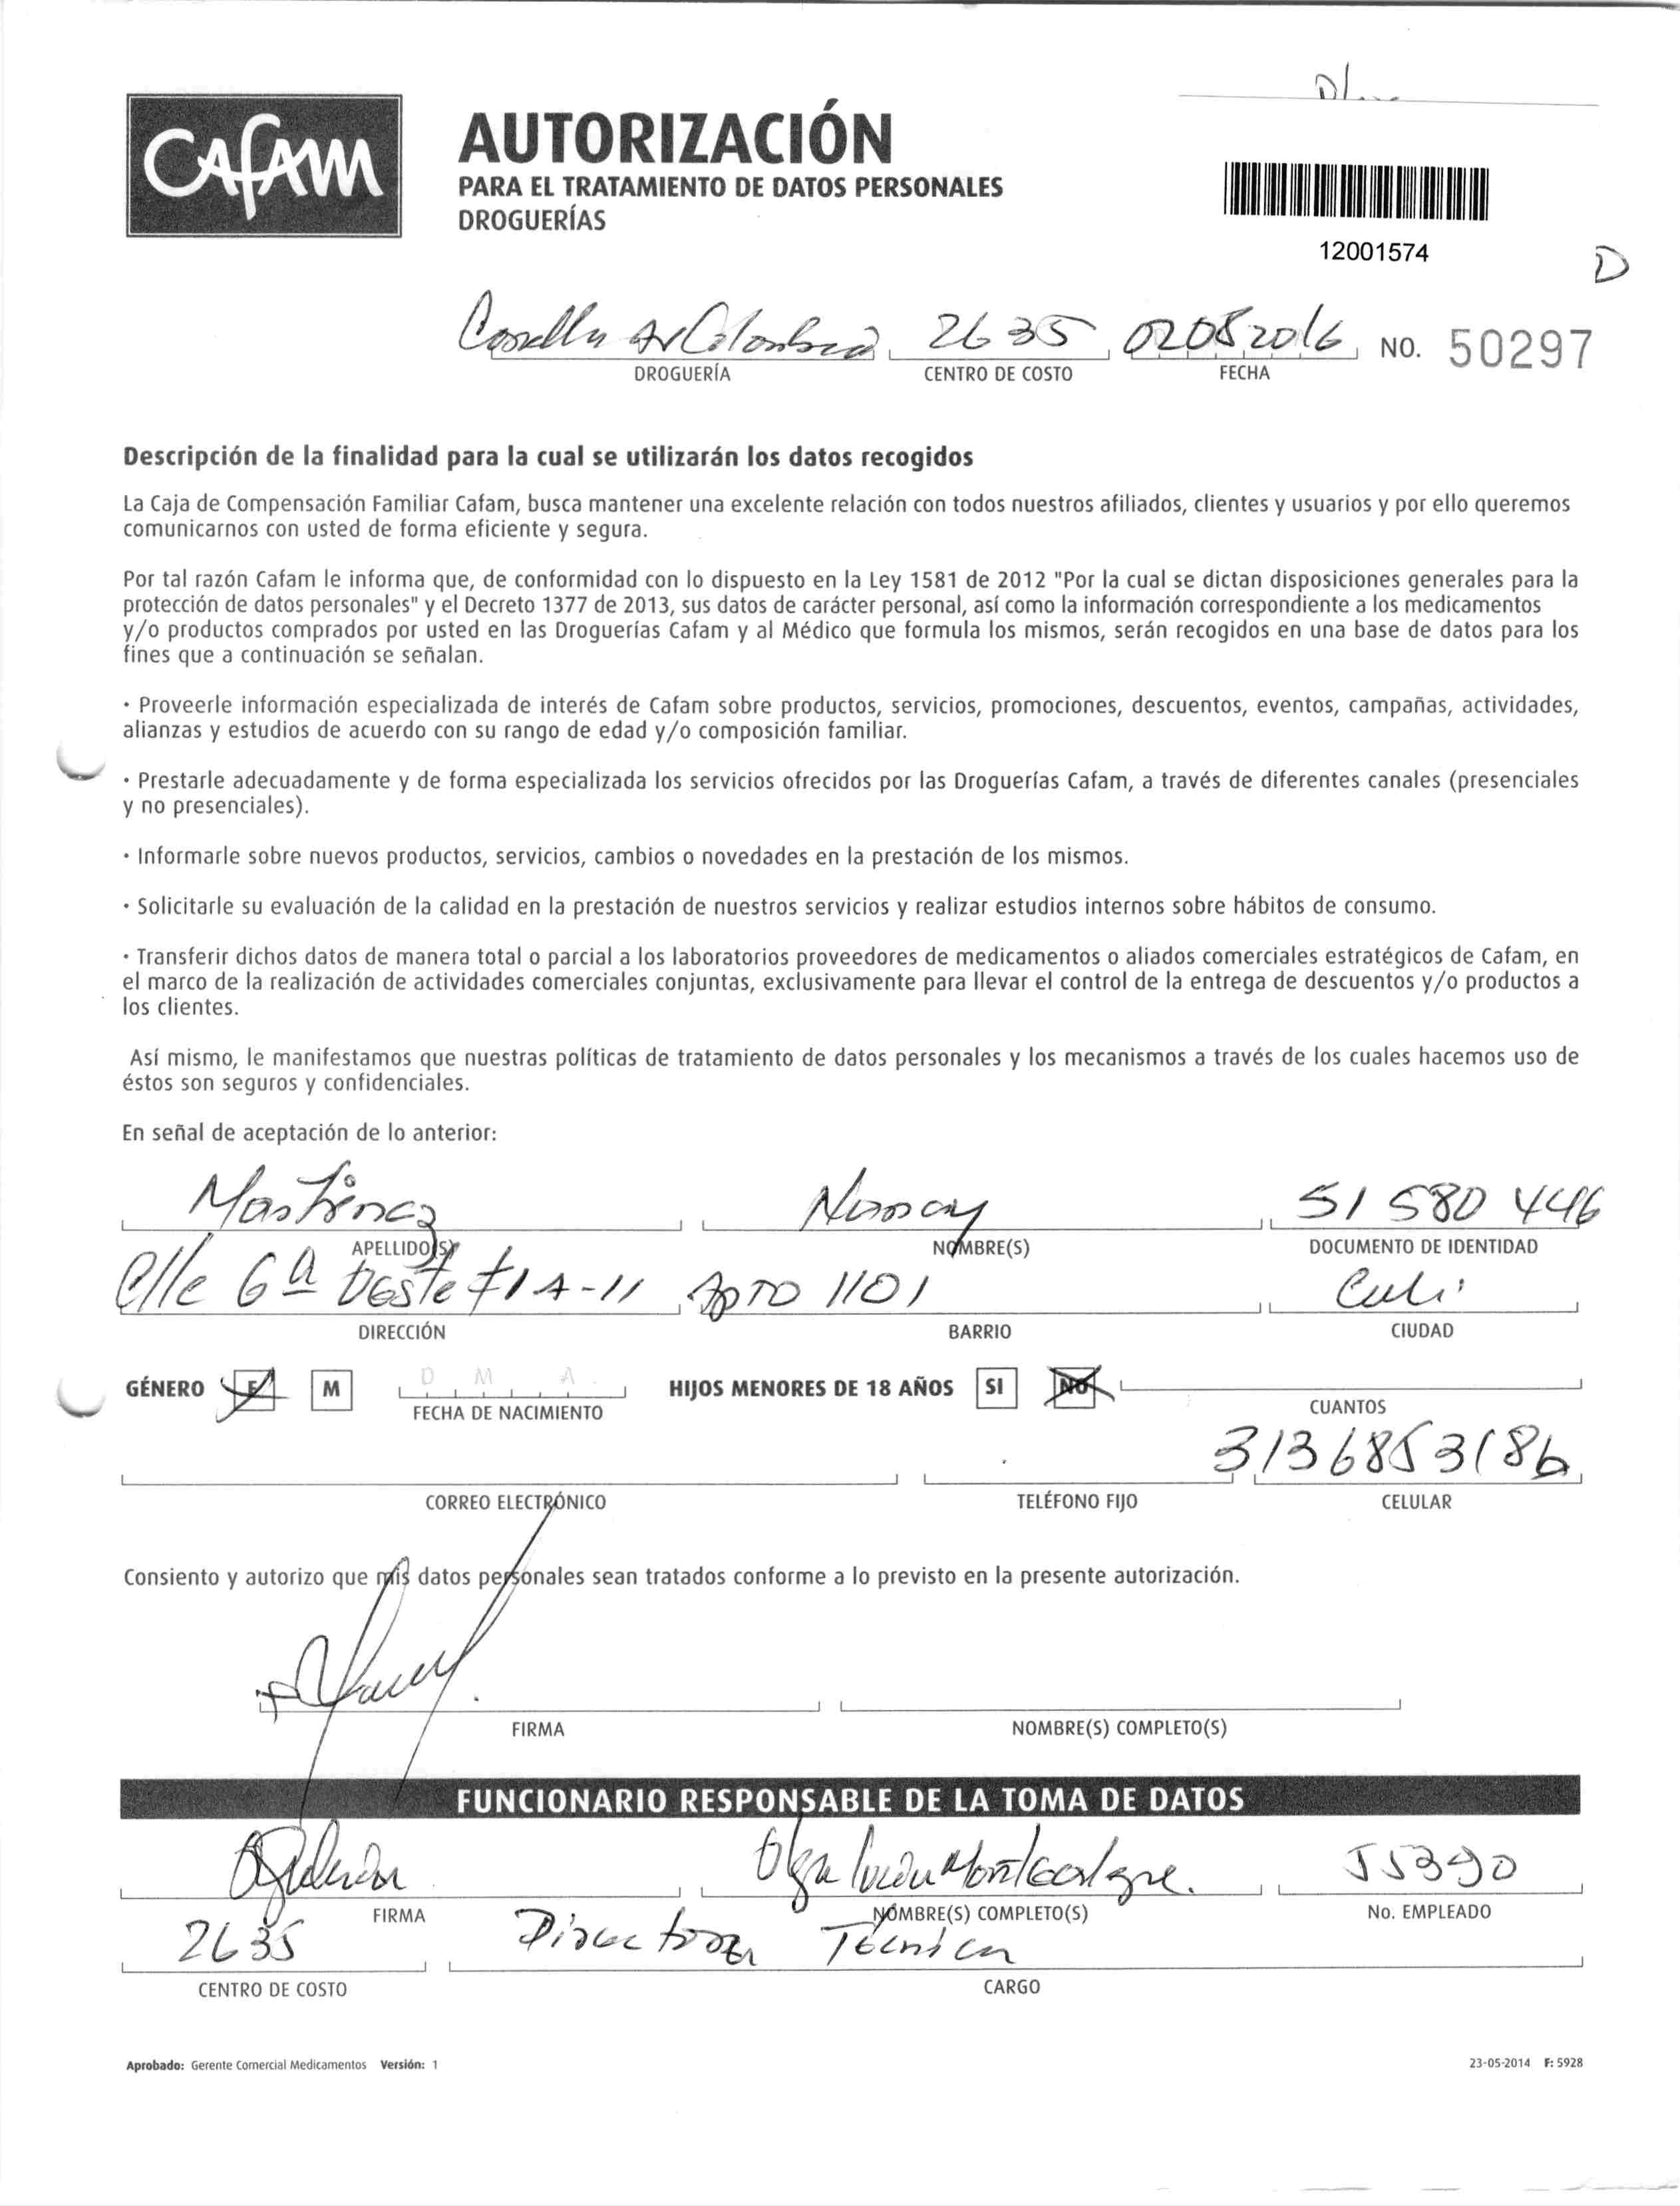 CAFAM
AUTORIZACIÓN
PARA EL TRATAMIENTO DE DATOS PERSONALES
DROGUERÍAS
12001574
D
Av Colombia 2635 02082016 NO. 50297
DROGUERÍA CENTRO DE COSTO FECHA
Descripción de la finalidad para la cual se utilizarán los datos recogidos
La Caja de Compensación Familiar Cafam, busca mantener una excelente relación con todos nuestros afiliados, clientes y usuarios y por ello queremos
comunicarnos con usted de forma eficiente y segura.
Por tal razón Cafam le informa que, de conformidad con lo dispuesto en la Ley 1581 de 2012 "Por la cual se dictan disposiciones generales para la
protección de datos personales" y el Decreto 1377 de 2013, sus datos de carácter personal, así como la información correspondiente a los medicamentos
y/o productos comprados por usted en las Droguerías Cafam y al Médico que formula los mismos, serán recogidos en una base de datos para los
fines que a continuación se señalan.
· Proveerle información especializada de interés de Cafam sobre productos, servicios, promociones, descuentos, eventos, campañas, actividades,
alianzas y estudios de acuerdo con su rango de edad y/o composición familiar.
· Prestarle adecuadamente y de forma especializada los servicios ofrecidos por las Droguerías Cafam, a través de diferentes canales (presenciales
y no presenciales).
· Informarle sobre nuevos productos, servicios, cambios o novedades en la prestación de los mismos.
· Solicitarle su evaluación de la calidad en la prestación de nuestros servicios y realizar estudios internos sobre hábitos de consumo.
· Transferir dichos datos de manera total o parcial a los laboratorios proveedores de medicamentos o aliados comerciales estratégicos de Cafam, en
el marco de la realización de actividades comerciales conjuntas, exclusivamente para llevar el control de la entrega de descuentos y/o productos a
los clientes.
Así mismo, le manifestamos que nuestras políticas de tratamiento de datos personales y los mecanismos a través de los cuales hacemos uso de
éstos son seguros y confidenciales.
En señal de aceptación de lo anterior:
Martinez Nancy 51 580 446
APELLIDO(S) NOMBRE(S) DOCUMENTO DE IDENTIDAD
Clle 6ª Oeste # 1 A - 11 Apto 1101 Cali
DIRECCIÓN BARRIO CIUDAD
GÉNERO F M D M A HIJOS MENORES DE 18 AÑOS SI NO
FECHA DE NACIMIENTO CUANTOS
3136853186
CORREO ELECTRÓNICO TELÉFONO FIJO CELULAR
Consiento y autorizo que mis datos personales sean tratados conforme a lo previsto en la presente autorización.
FIRMA NOMBRE(S) COMPLETO(S)
FUNCIONARIO RESPONSABLE DE LA TOMA DE DATOS
Olga Lucia Montealegre. 55390
FIRMA NOMBRE(S) COMPLETO(S) No. EMPLEADO
2635 Directora Técnica
CENTRO DE COSTO CARGO
Aprobado: Gerente Comercial Medicamentos Versión: 1 23-05-2014 F: 5928